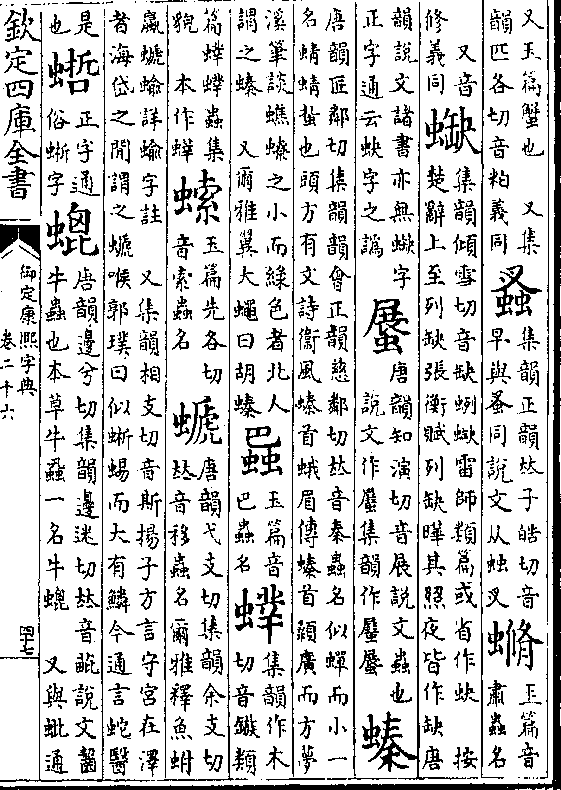 又玉篇蟹也　又集
韻匹各切音粕義同
蝨
集韻正韻𠀤子皓切音
早與蚤同說文从䖵叉
蛕
玉篇音
肅蟲名
又音
修義同
蝴
集韻傾雪切音缺蛚蝴雷師類篇或省作蚗　按
楚辭上至列缺張衡賦列缺曄其照夜皆作缺唐
韻說文諸書亦無蝴字
正字通云蚗字之譌
蜃
唐韻知演切音展說文蟲也
說文作蜃集韻作蜃蜃
螓
唐韻匠鄰切集韻韻會正韻慈鄰切𠀤音秦蟲名似蟬而小一
名蜻蜻蚻也頭方有文詩衞風螓首蛾眉傳螓首顙廣而方夢
溪筆談蟭螓之小而綠色者北人
謂之螓　又爾雅翼大蠅曰胡螓
䖵
玉篇音
巴蟲名
蠌
集韻作木
切音鏃類
篇蠌蠌蟲集
韻　本作蠌
螦
玉篇先各切
音索蟲名
螔
唐韻弋支切集韻余支切
𠀤音移蟲名爾雅釋魚蚹
蠃螔蝓詳蝓字註　又集韻相支切音斯揚子方言守宮在澤
者海岱之閒謂之螔㺅郭璞曰似蜥蜴而大有鱗今通言蛇醫
是
也
蜤
正字通
俗蜥字
螕
唐韻邊兮切集韻邊迷切𠀤音豍說文齧
牛蟲也本草牛蝨一名牛螕　又與蚍通
欽定四庫全書
御定康熙字典
卷二十六
四十七